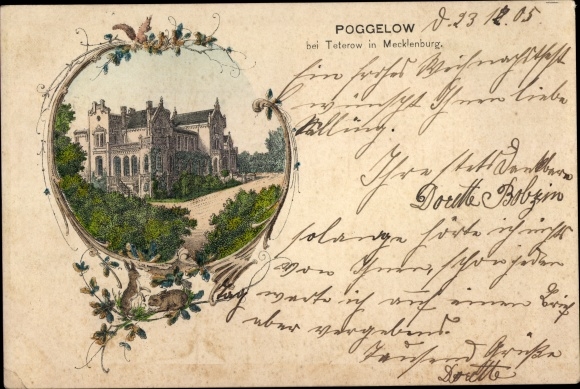 POGGELOW
bei Teterow in Mecklenburg.
d. 23 12. 05.
Ein frohes Weihnachtsfest
wünscht Ihnen liebe
Ihre stets dankbare
Dorette Bobzin
solange hörte ich nichts
von Ihnen, schon jeden
Tag warte ich auf einen Brief
aber vergebens.
Tausend Grüße
Dorette